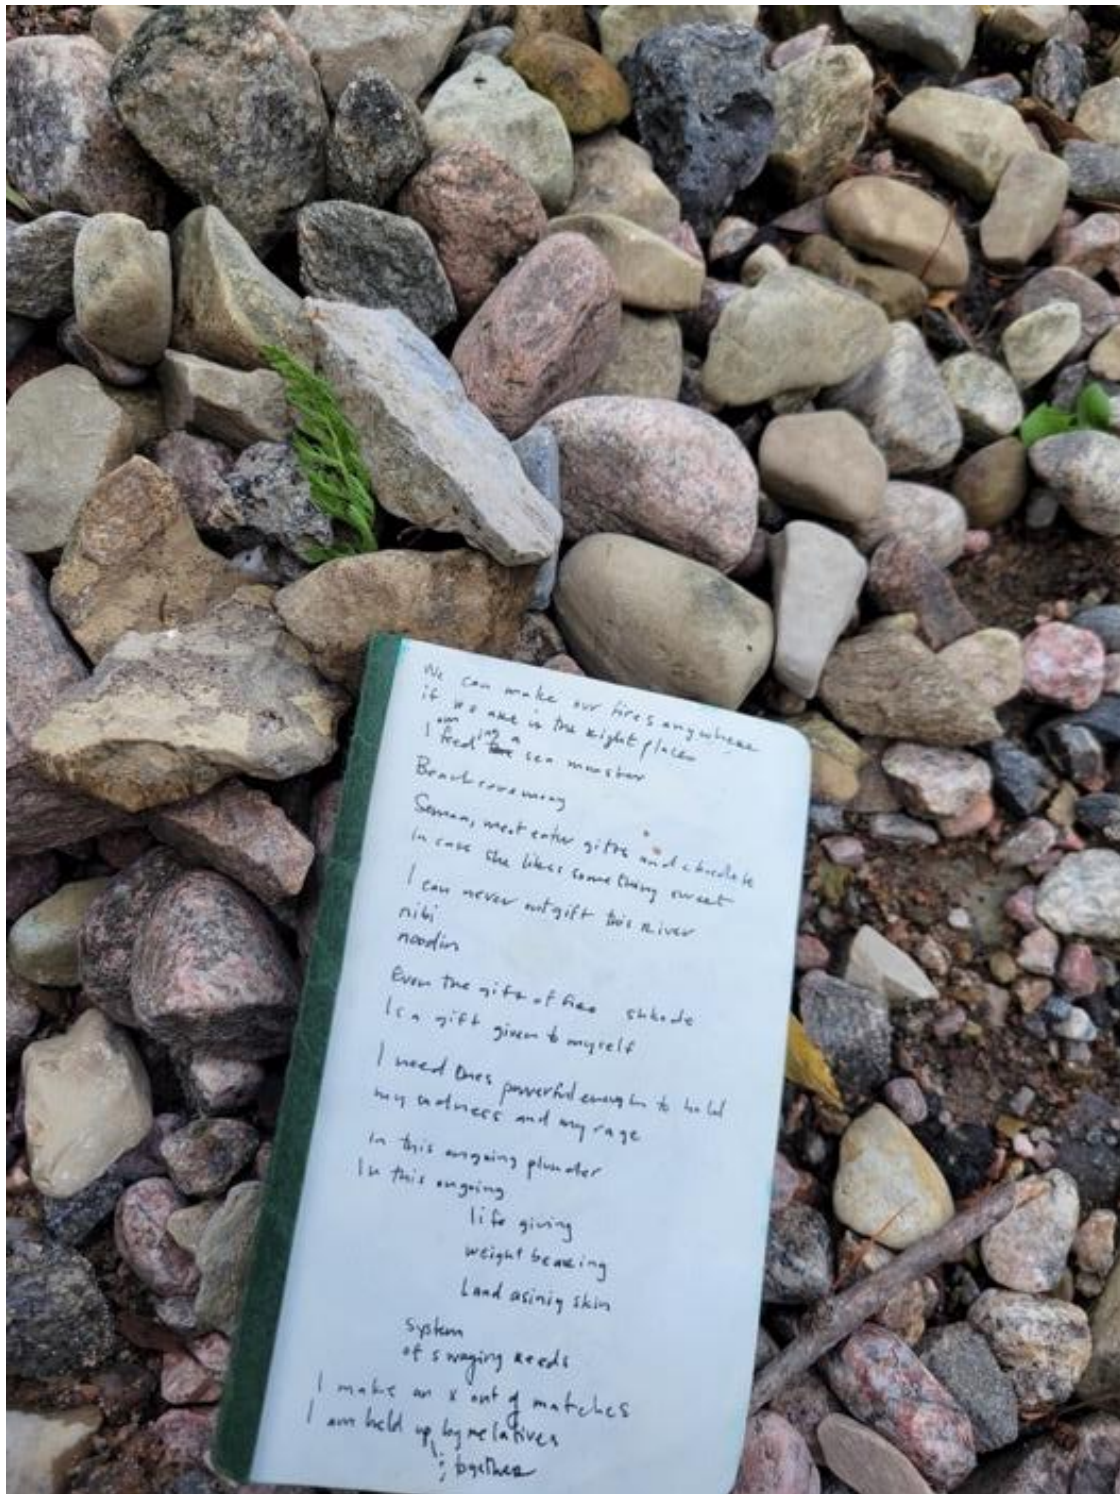 We can make our fires anywhere
if we are in the right place
I am feeding a sea monster
Beach ceremony
Semaa, meat eater gifts and chocolate
In case she likes something sweet
I can never not gift this river
nibi
noodin
Even the gift of fire shkode
Is a gift given to myself
I need Ones powerful enough to hold
my sadness and my rage
In this ongoing plunder
In this ongoing
life giving
weight bearing
Land asinig skin
System
of swaying reeds
I make an x out of matches
I am held up by relatives
together